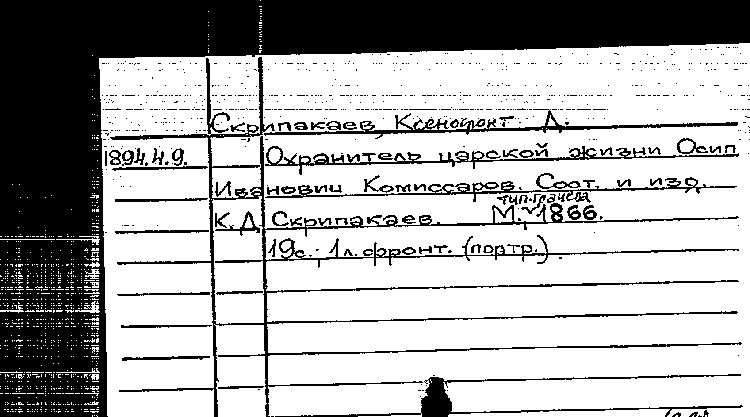 Скрипакаев, Ксенофонт Д.
1894.4.9. Охранитель царской жизни Осип
Иванович Комиссаров. Сост. и изд.
К.Д. Скрипакаев. М., тип. Грачева 1866.
19с.; 1л. фронт. (портр.).